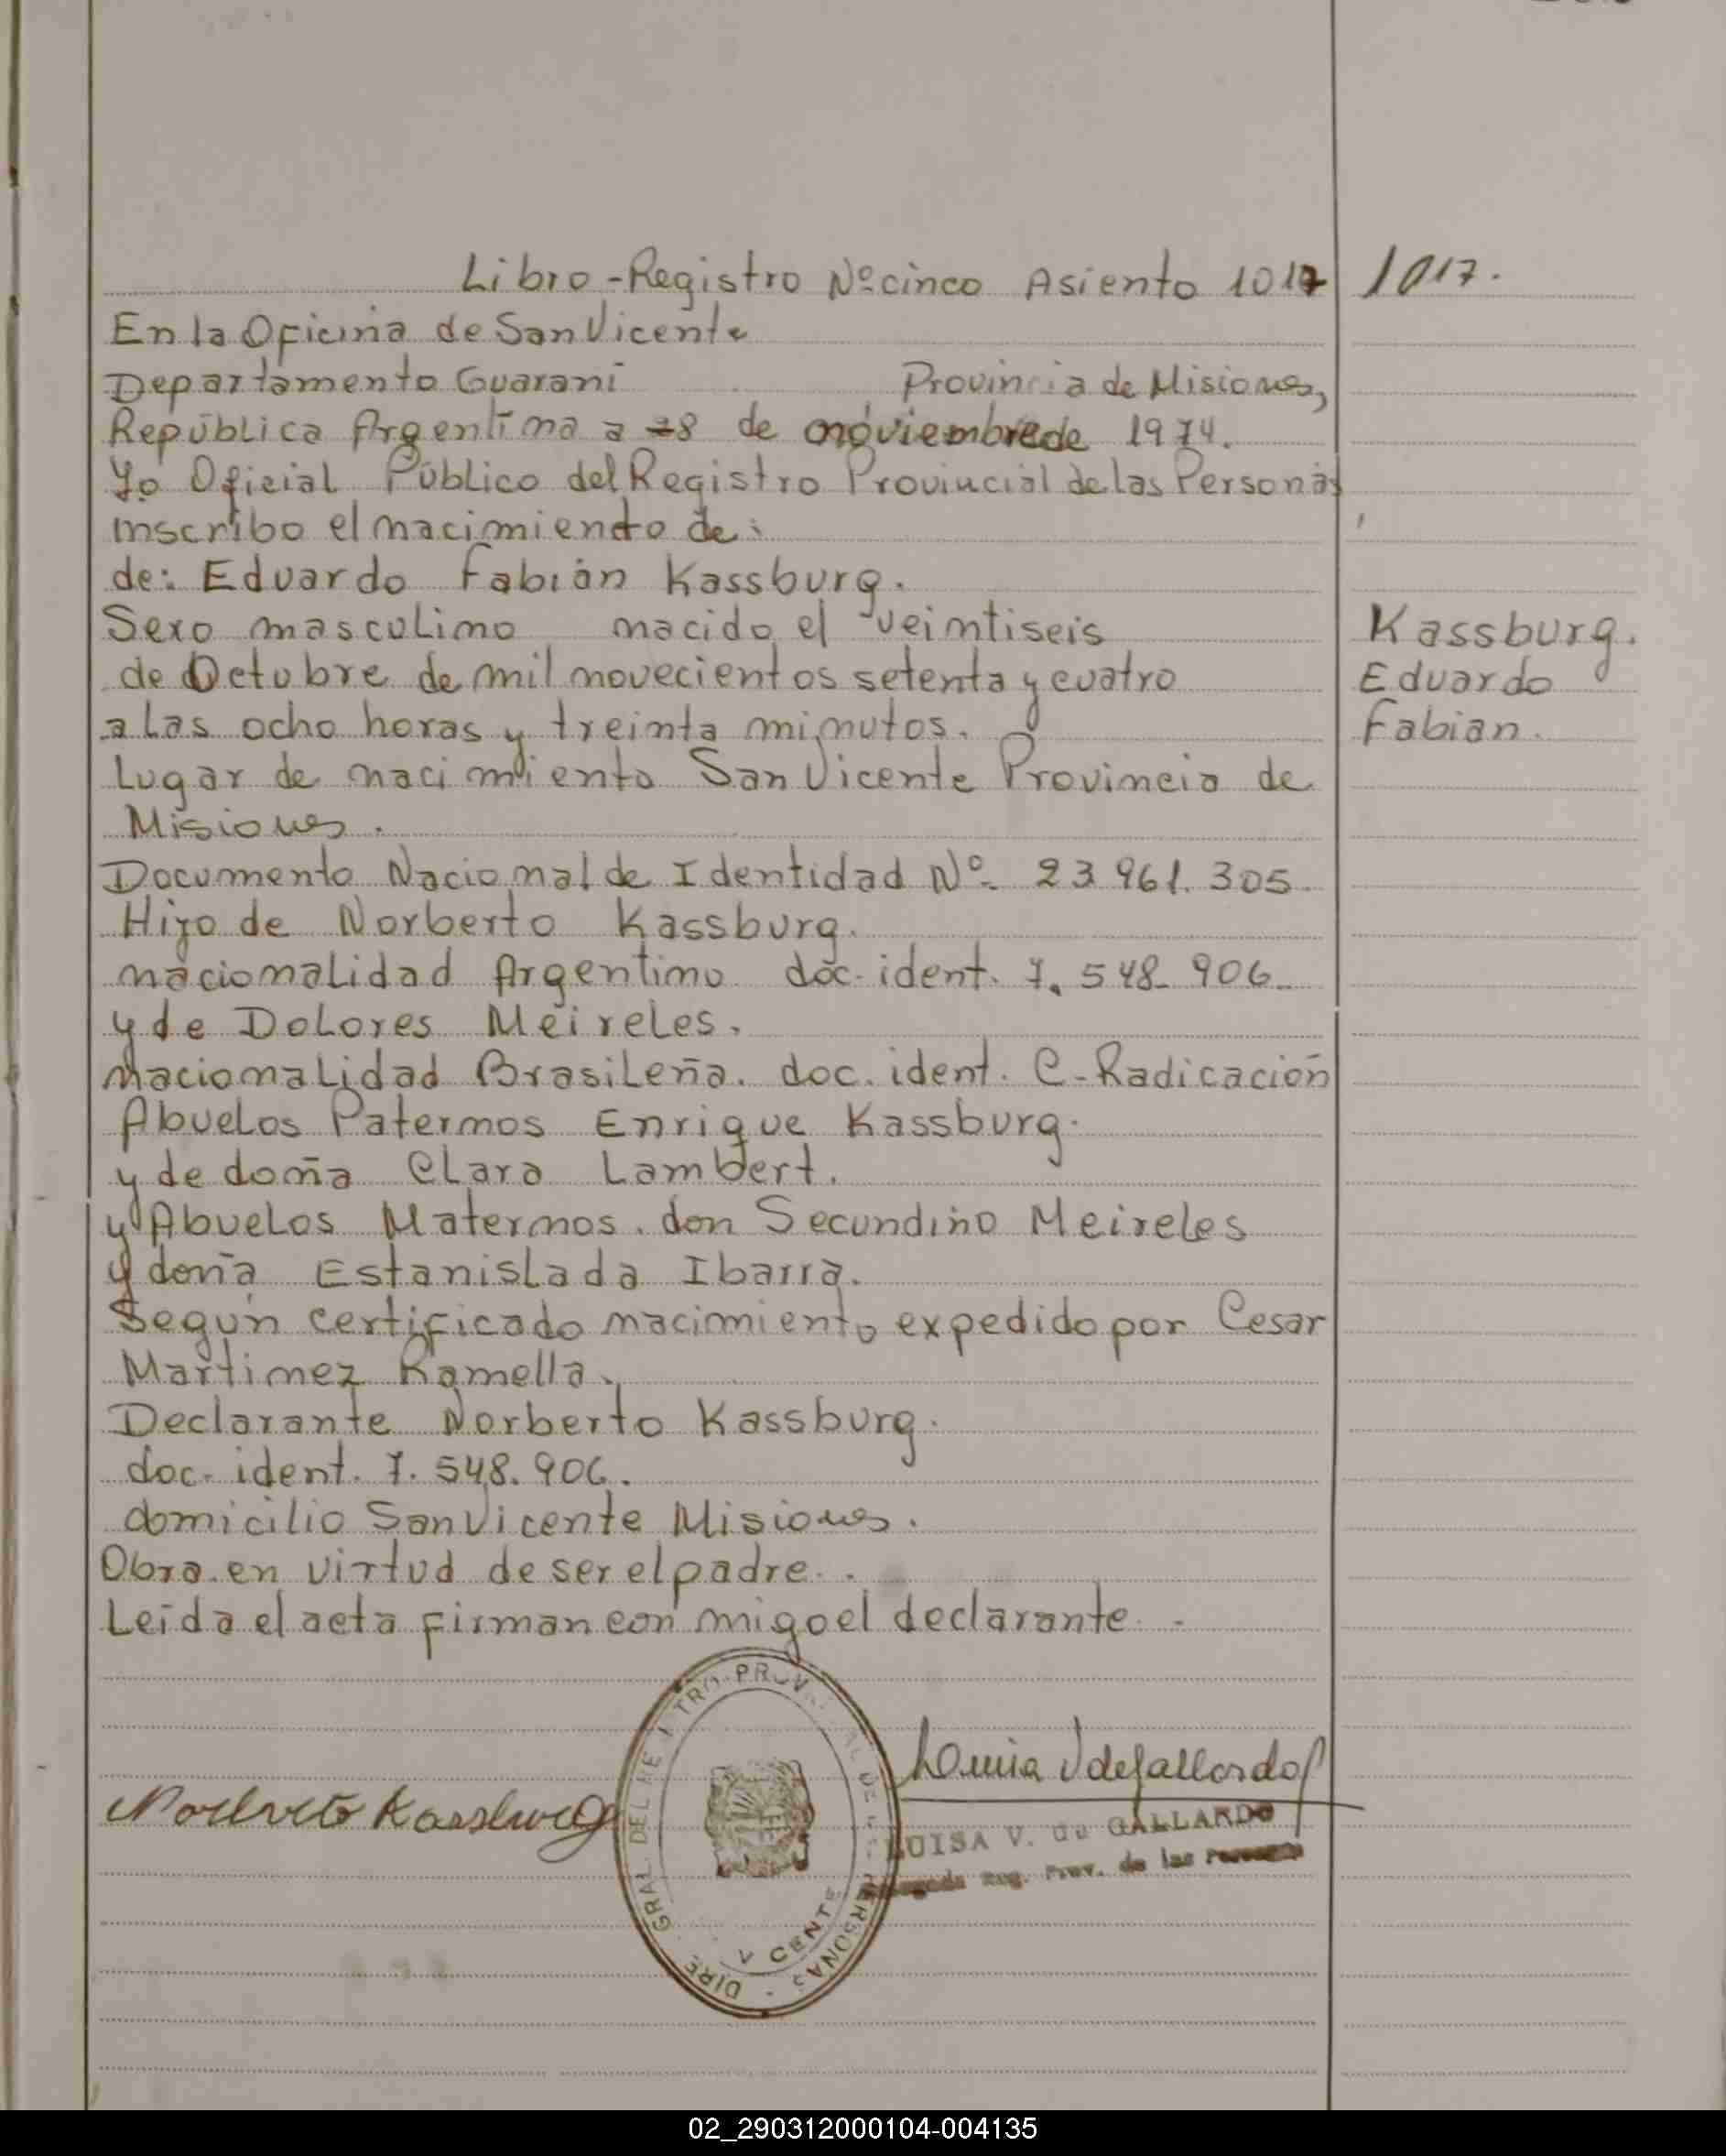 Libro-Registro Nº cinco Asiento 1017
1017.
En la Oficina de San Vicente
Departamento Guarani Provincia de Misiones,
República Argentina a 8 de noviembre de 1974.
Yo Oficial Público del Registro Provincial de las Personas
inscribo el nacimiento de:
de: Eduardo Fabián Kassburg.
Sexo masculino nacido el veintiseis
Kassburg.
de Octubre de mil novecientos setenta y cuatro
Eduardo
a las ocho horas y treinta minutos.
Fabian.
Lugar de nacimiento San Vicente Provincia de
Misiones.
Documento Nacional de Identidad Nº 23 961. 305
Hijo de Norberto Kassburg.
nacionalidad Argentino doc-ident. 7. 548- 906
y de Dolores Meireles.
nacionalidad Brasileña. doc. ident. C-Radicación
Abuelos Paternos Enrique Kassburg.
y de doña Clara Lambert.
y Abuelos Maternos. don Secundino Meireles
y doña Estanislada Ibarra.
Según certificado nacimiento expedido por Cesar
Martinez Ramella.
Declarante Norberto Kassburg.
doc- ident. 7. 548. 906.
domicilio San Vicente Misiones.
Obra en virtud de ser el padre.
Leida el acta firman con migo el declarante.
Norberto Kassburg
Luisa V de Gallardo
LUISA V. de GALLARDO
Reg. Prov. de las Personas
DIRE. GRAL. DEL PERSONAS
V CENTE
02_290312000104-004135